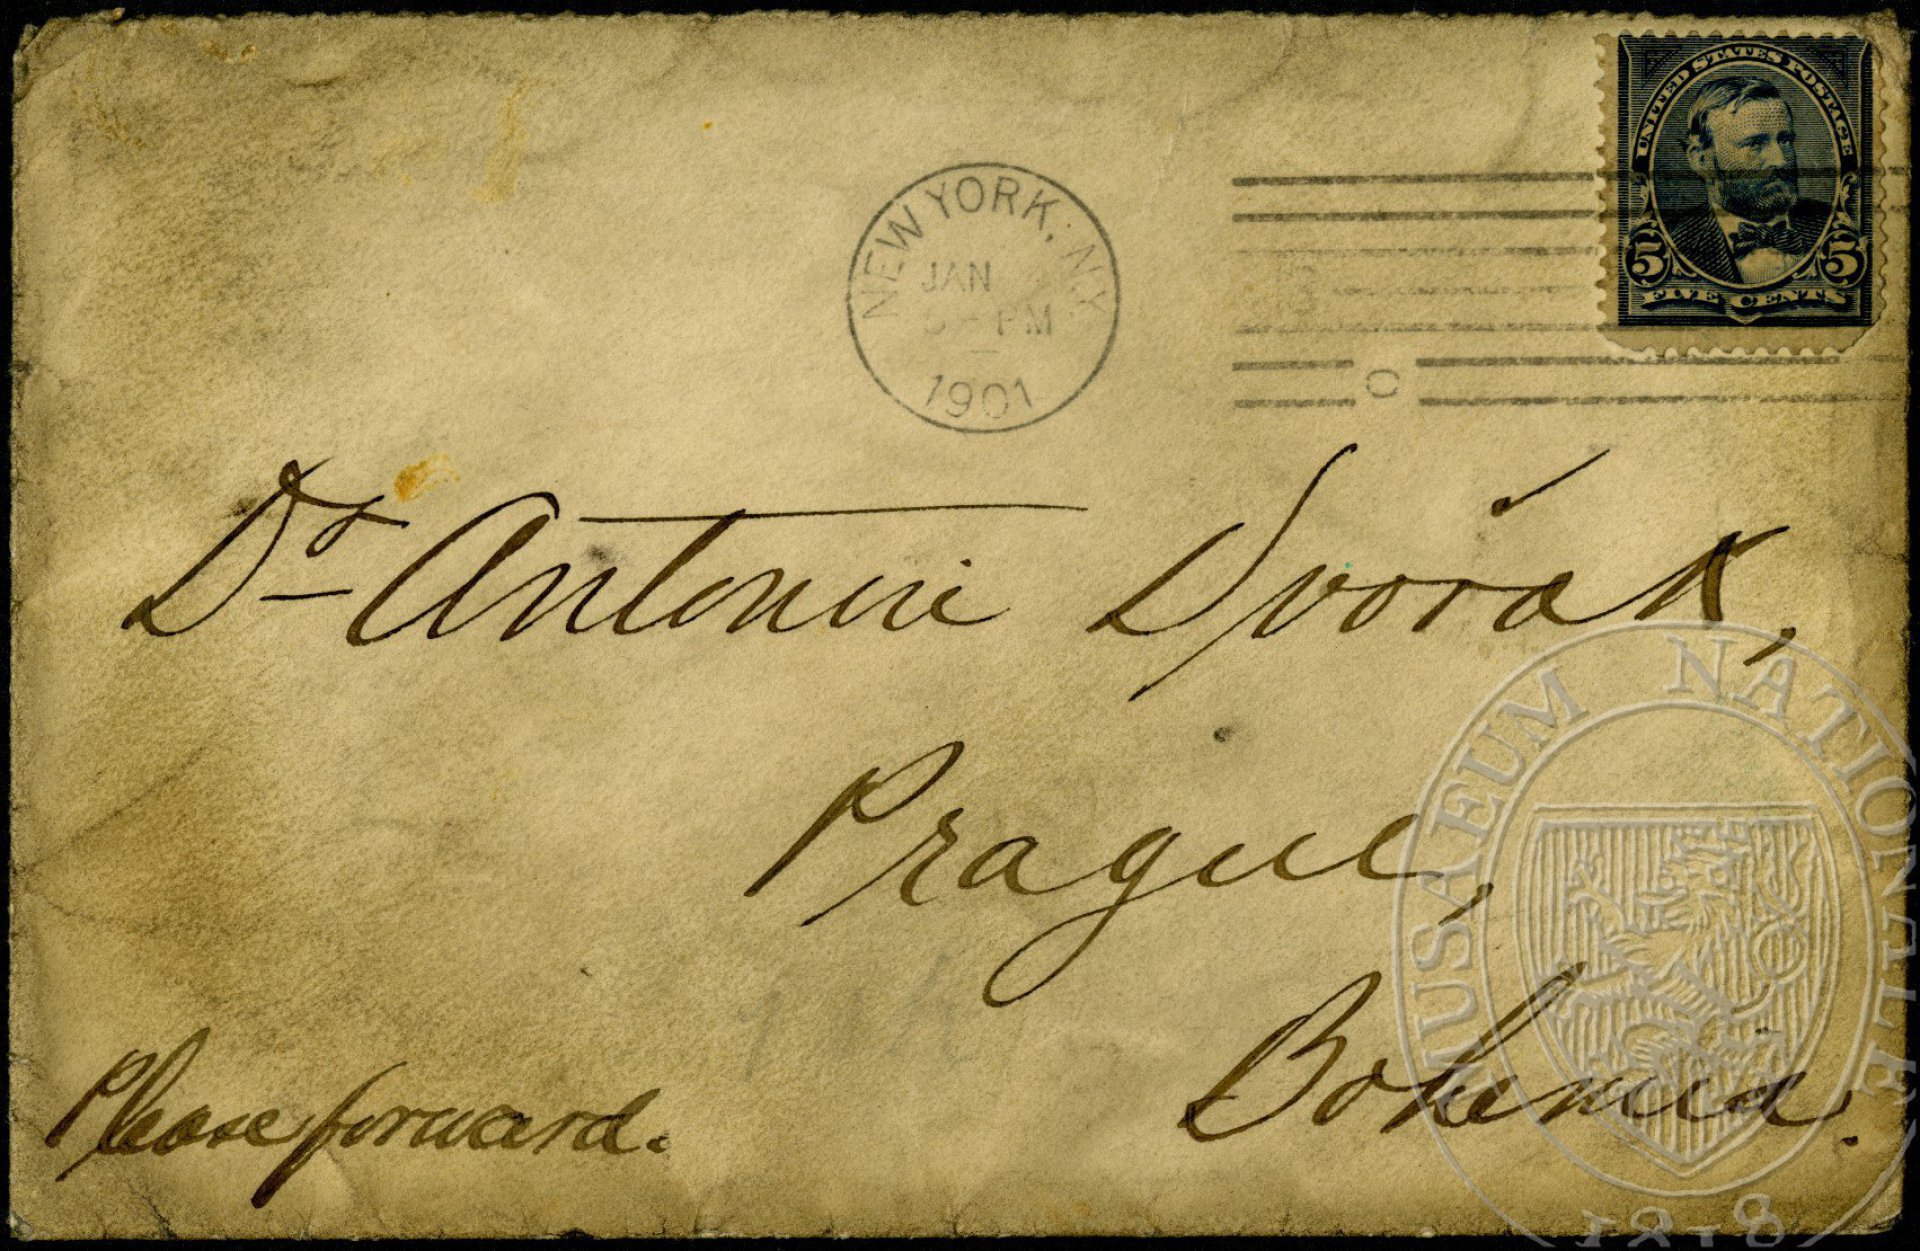 UNITED STATES POSTAGE
5 5
FIVE CENTS
NEW YORK, N.Y.
JAN
PM
1901
Dr Antonin Dvorák,
Prague,
Bohemia.
Please forward.
MUSAEUM NATIONALE
1818